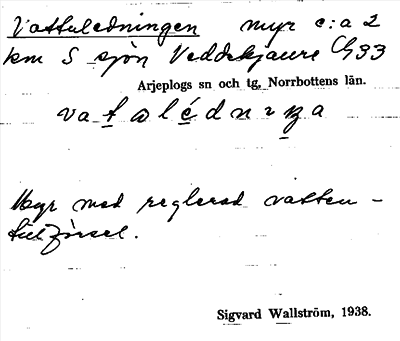 Vattuledningen myr c:a 2
km S sjön Veddekjaure C33
Arjeplogs sn och tg, Norrbottens län.
Myr med reglerad vatten-
tillförsel.
Sigvard Wallström, 1938.